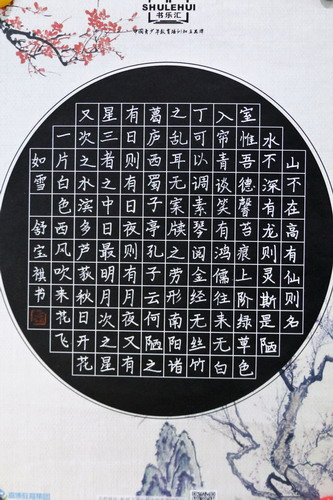 SHULEHUI
书乐汇
山不在高有仙则名
水不深有龙则灵斯是陋
室惟吾德馨苔痕上阶绿草色
入帘青谈笑有鸿儒往来无白
丁可以调素琴阅金经无丝竹
之乱耳无案牍之劳形南阳诸
葛庐西蜀子亭孔子云何陋之
有日则有日夜则有月夜又有
星三者之中日最明月次之星
又次之水滨多芦荻秋日开花
一片白色西风吹来花飞
如雪 舒宝祖书